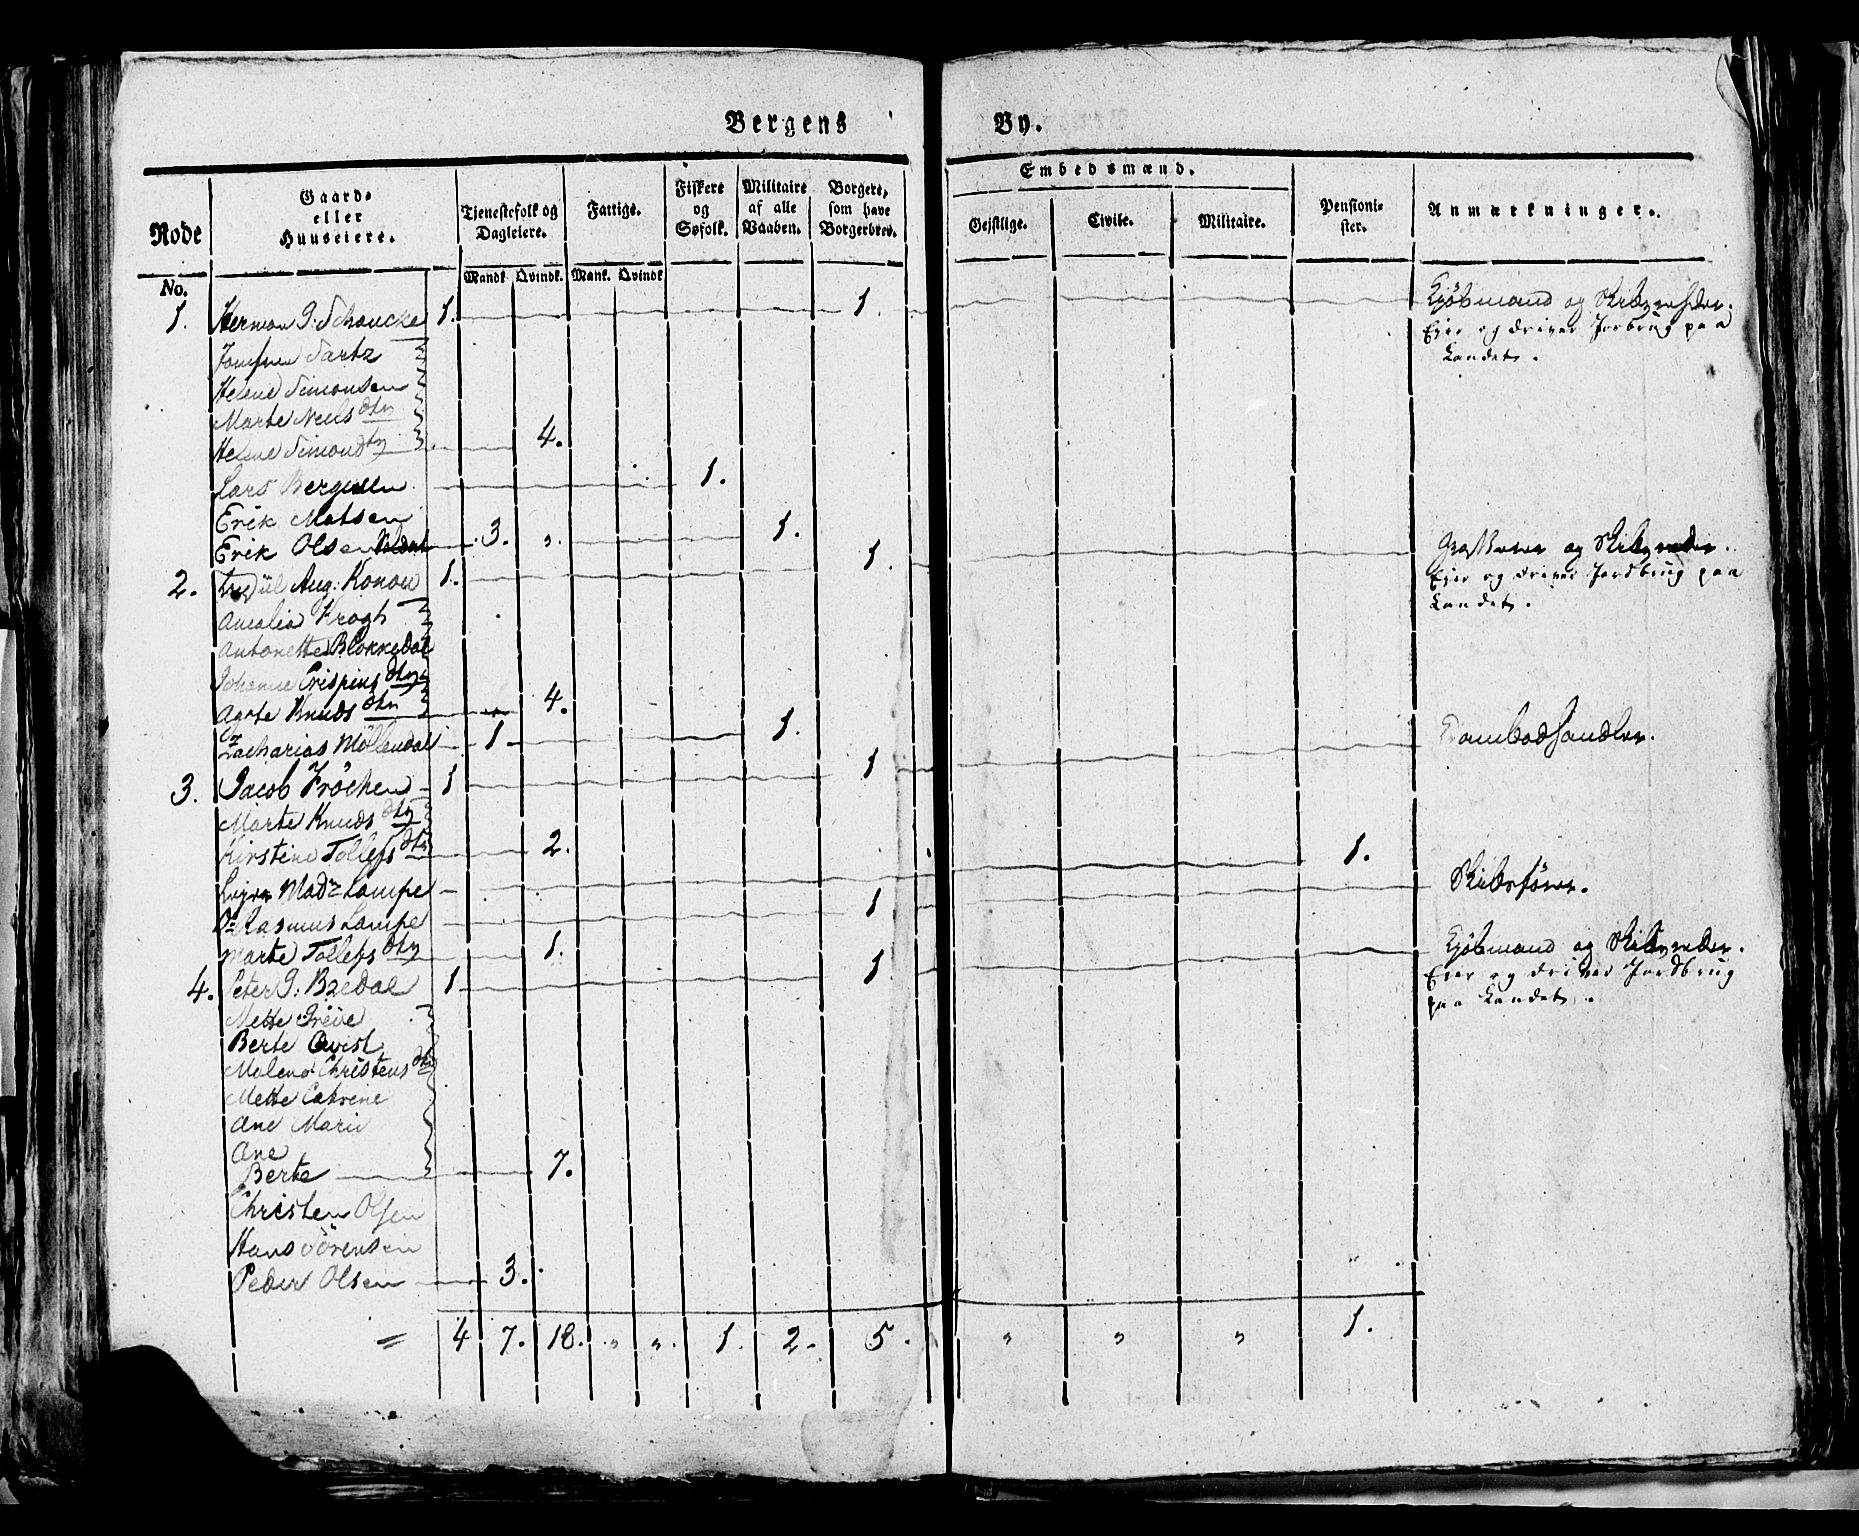 Bergens By.
Embedsmænd.
Rode No.
Gaard- eller Huuseiere.
Tjenestefolk og Dagleiere.
Mandk. Qvindk.
Fattige.
Mank. Qvindk
Fiskere og Søfolk.
Militaire af alle Vaaben.
Borgere, som have Borgerbrev.
Gejstlige.
Civile.
Militaire.
Pensionister.
Anmærkninger.
1. Herman G. Schoucke 1. 1. Kjøbmand og Skibsrheder.
Ejer og driver Jorbrug paa
Landet.
Jomfrue Sartz
Helene Simonsen
Marte Neels dtr
Helene Simond dtr 4.
Lars Bergesen 1.
Erik Matsen
Erik Olsen 3. „ 1.
2. Aug: Konow 1. 1. og Skibsreder.
Ejer og driver Jordbrug paa
Landet.
Amalia Krogh
Antonette Blokkedal
Johanne Crispins dtr
Agote Knuds dtr 4.
Zacharias Møllendal 1. 1.
3. Jacob Fröchen 1 1 Krambodhandler.
Marte Knuds dtr
Kirstine Tollefs dtr 2.
Mad: Lampe 1.
Rasmus Lampe 1 Skibsfører.
Marte Tollefs dtr 1.
4. Peter G: Bredal 1 1. Kjøbmand og Skibsreder.
Ejer og driver Jordbrug
paa Landet.
Mette Greve
Berte Qvist
Malene Christens dtr
Mette Catrine
Ane Marie
Ane
Berte 7.
Christen Olsen
Hans Sörensen
Peder Olsen 3.
= 4 7. 18. „ „ 1. 2. 5. „ „ „ 1.